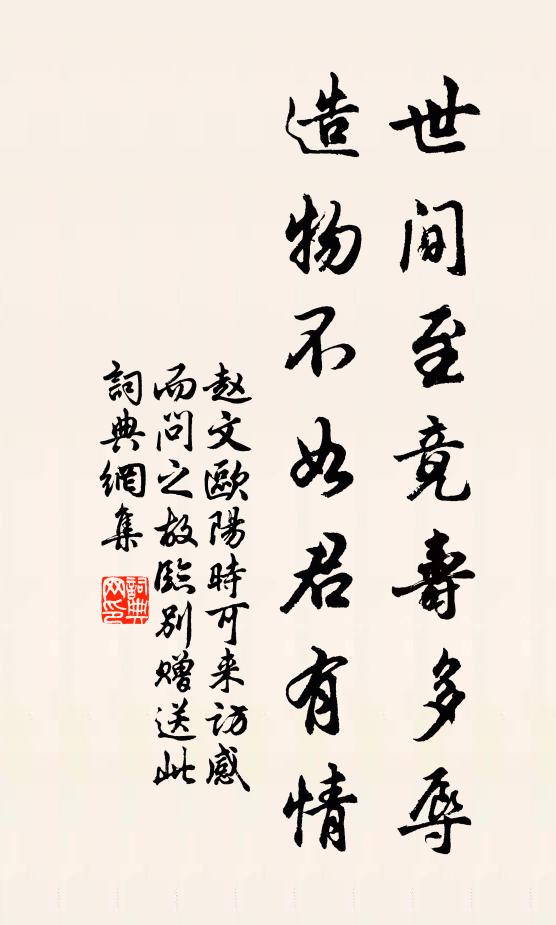 世间至竟壽多辱
造物不如君有情
赵文歐陽時可来访感
而问之故臨别赠送此
詞典網集
詞典網印